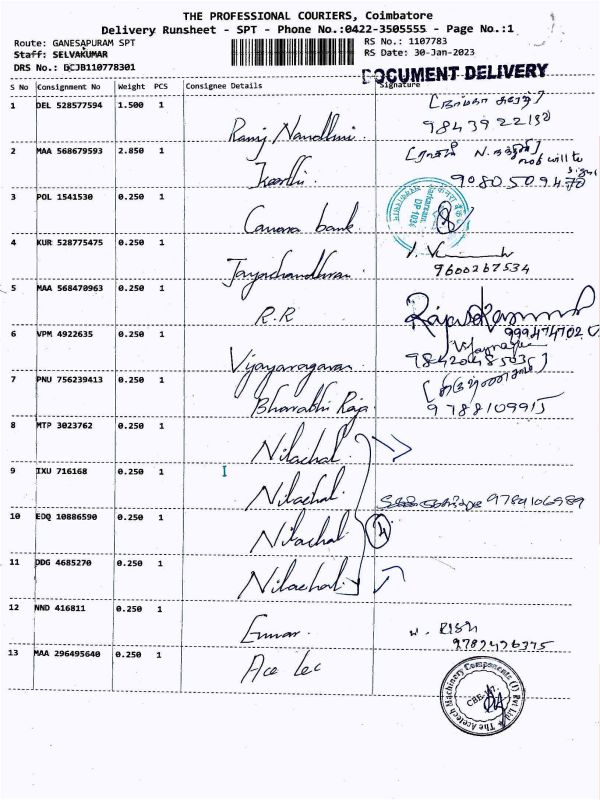 THE PROFESSIONAL COURIERS, Coimbatore
Delivery Runsheet - SPT - Phone No.:0422-3505555 - Page No.:1
Route: GANESAPURAM SPT
RS No.: 1107783
Staff: SELVAKUMAR
RS Date: 30-Jan-2023
DRS No.: DCJB110778301
DOCUMENT DELIVERY
S No Consignment No Weight PCS Consignee Details Signature
1 DEL 528577594 1.500 1
Nandhini
2 MAA 568679593 2.850 1
N. not will to
3 POL 1541530 0.250 1
Canara bank
4 KUR 528775475 0.250 1
Jayachandhran
9600267534
5 MAA 568470963 0.250 1
R.R
6 VPM 4922635 0.250 1
Vijayaragavan
7 PNU 756239413 0.250 1
Bharathi Raja
9788109915
8 MTP 3023762 0.250 1
Nilachal
9 IXU 716168 0.250 1
Nilachal
10 EDQ 10886590 0.250 1
Nilachal
4
11 DDG 4685270 0.250 1
Nilachal
12 NND 416811 0.250 1
13 MAA 296495640 0.250 1
Ace tec
The Acetech Machinery Components (I) Pvt Ltd